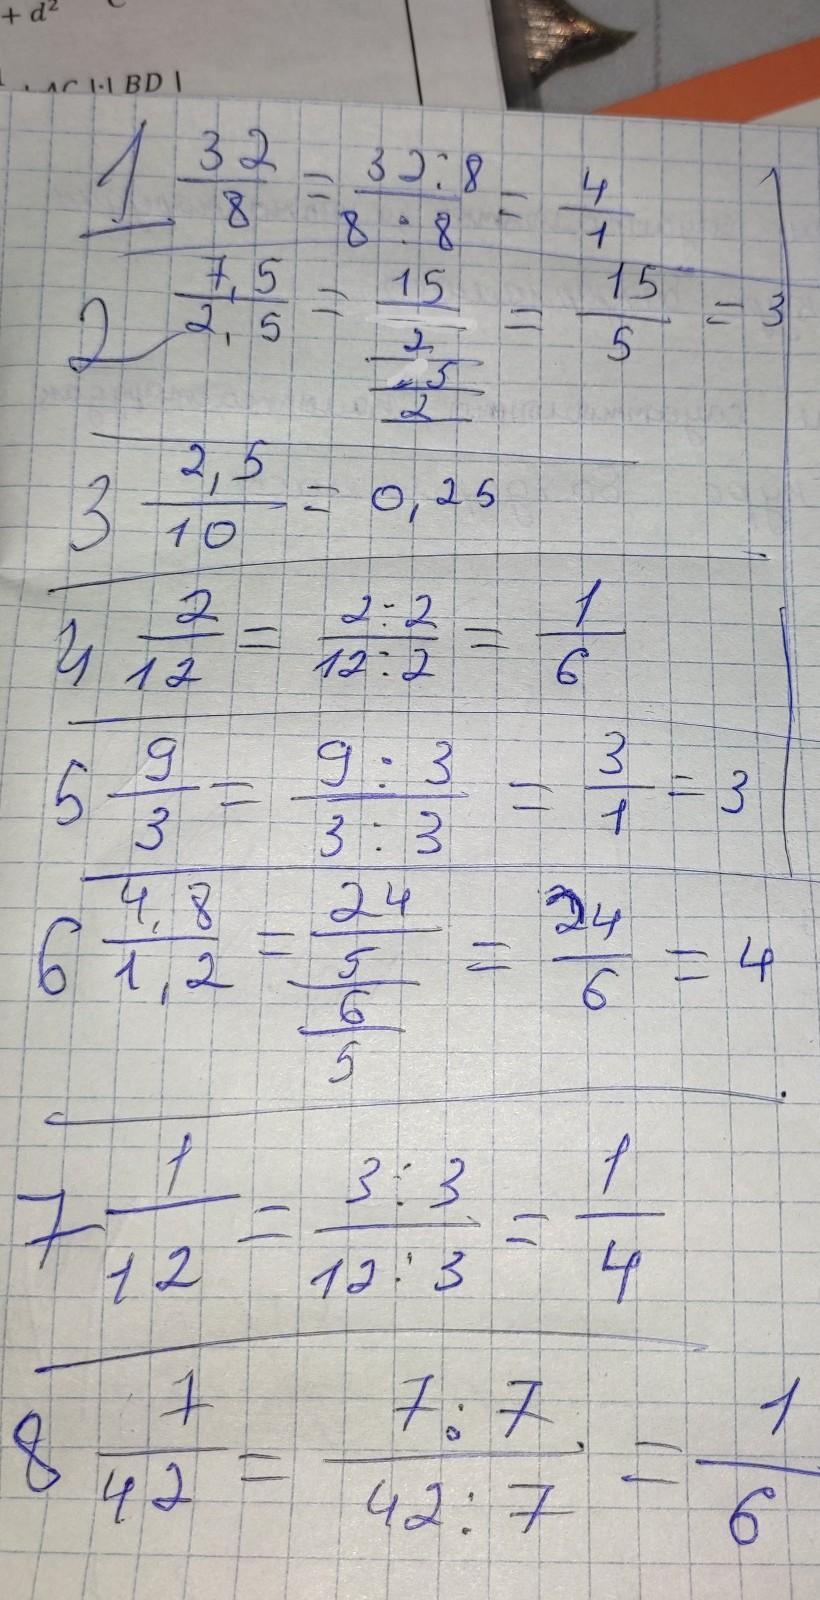 + d²
AC |·| BD |
1 32/8 = 32:8/8:8 = 4/1
2 7,5/2,5 = 15/2/5/2 = 15/5 = 3
3 2,5/10 = 0,25
4 2/12 = 2:2/12:2 = 1/6
5 9/3 = 9:3/3:3 = 3/1 = 3
6 4,8/1,2 = 24/5/6/5 = 24/6 = 4
7 1/12 = 3:3/12:3 = 1/4
8 7/42 = 7:7/42:7 = 1/6